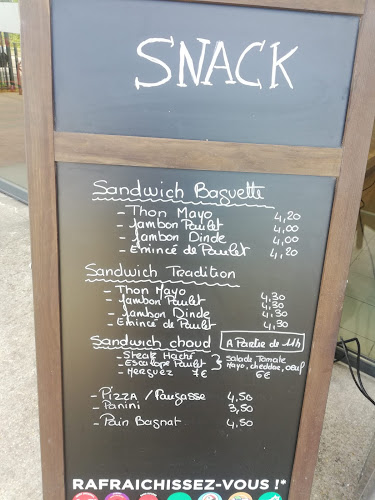 SNACK
Sandwich Baguette
- Thon Mayo 4,20
- Jambon Poulet 4,00
- Jambon Dinde 4,00
- Emincé de Poulet 4,20
Sandwich Tradition
- Thon Mayo 4,30
- Jambon Poulet 4,30
- Jambon Dinde 4,30
- Emincé de Poulet 4,30
Sandwich chaud A Partir de 11h
- Steak Haché
- Escalope Poulet
- Merguez 7€
Salade, Tomate
Mayo, cheddar, oeuf
6€
- Pizza / Fougasse 4,50
- Panini 3,50
- Pain Bagnat 4,50
RAFRAICHISSEZ-VOUS !*